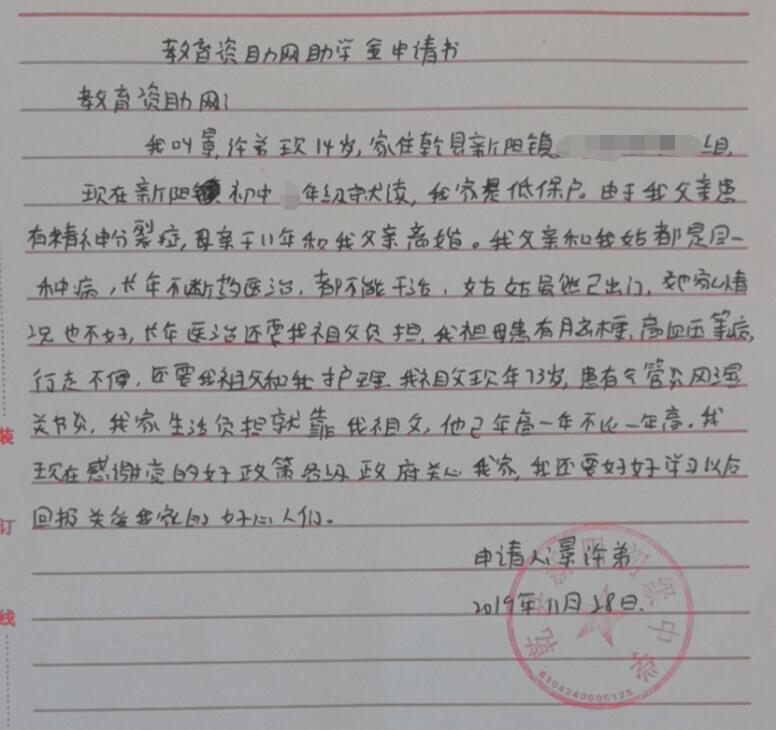 教育资助网助学金申请书
教育资助网:
我叫景许弟现14岁,家住乾县新阳镇 组,
现在新阳镇初中 年级就读,我家是低保户。由于我父亲患
有精神分裂症,母亲于11年和我父亲离婚。我父亲和我姑都是同一
种病,长年不断药医治,都不能干活,姑姑虽然已出门,她家以情
况也不好,长年医治还要我祖父负担,我祖母患有脑梗,高血压等病,
行走不便,还要我祖父和我护理.我祖父现年73岁,患有气管炎风湿
关节炎,我家生活负担就靠我祖父,他已年高一年不比一年高。我
现在感谢党的好政策各级政府关心我家,我还要好好学习以后
回报关爱我家的好心人们。
申请人:景许弟
2019年11月28日.
乾县新阳初级中学
6104240005175
装
订
线